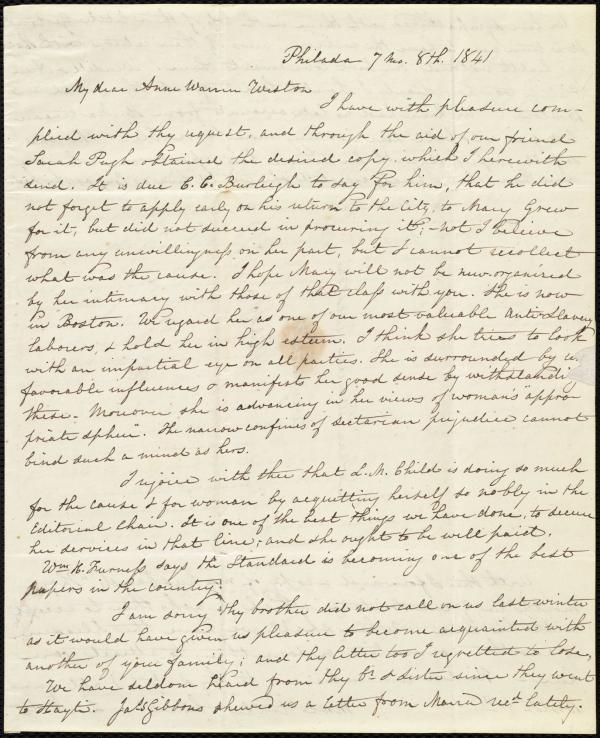 Philada 7 Mo. 8th. 1841
My dear Anne Warren Weston
I have with pleasure com-
plied with thy request, and through the aid of our friend
Sarah Pugh obtained the desired copy, which I herewith
send. It is due C. C. Burleigh to say for him, that he did
not forget to apply early on his return to the City, to Mary Grew
for it, but did not succeed in procuring it; - not I believe
from any unwillingness on her part, but I cannot recollect
what was the cause. I hope Mary will not be new-organized
by her intimacy with those of that class with you. She is now
in Boston. We regard her as one of our most valuable Anti-Slavery
laborers, & hold her in high esteem. I think she tries to look
with an impartial eye on all parties. She is surrounded by un-
favorable influences & manifests her good sense by withstanding
these. Moreover she is advancing in her views of woman's "appro-
priate sphere". The narrow confines of sectarian prejudice cannot
bind such a mind as hers.
I rejoice with thee that L. M. Child is doing so much
for the cause & for woman by acquitting herself so nobly in the
Editorial Chair. It is one of the best things we have done, to secure
her services in that line; and she ought to be will paid.
Wm. H. Furness says the Standard is becoming one of the best
papers in the country.
I am sorry thy brother did not call on us last winter
as it would have given us pleasure to become acquainted with
another of your family; and thy letter too I regretted to lose.
We have seldom heard from thy br. & sister since they went
to Hayti. Jas. Gibbons shewed us a letter from Maria recd. lately.